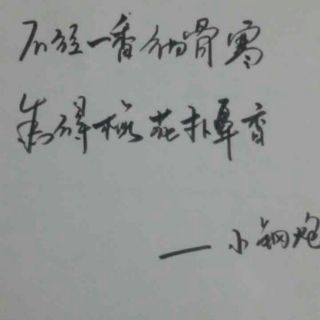 不经一番彻骨寒
怎得梅花扑鼻香
— 小钢炮